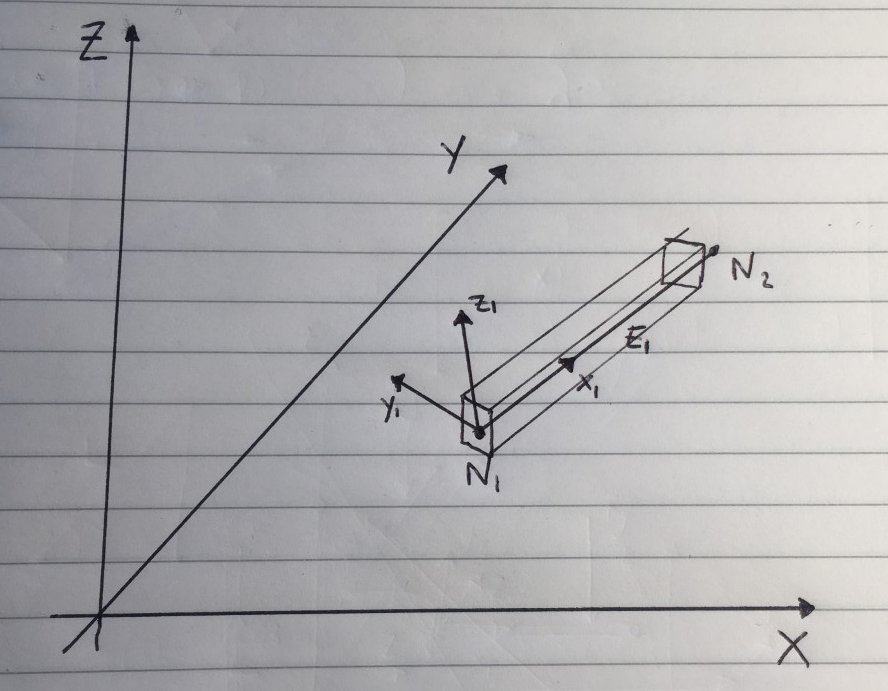 Z
Y
N₂
z₁
E₁
x₁
y₁
N₁
X